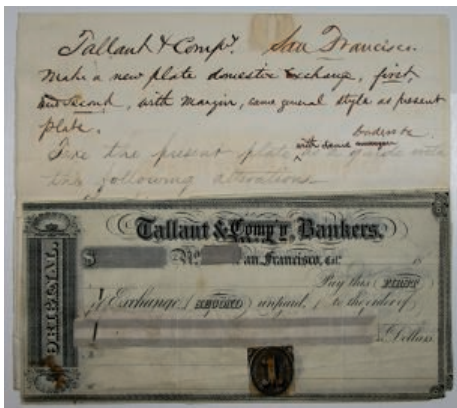 Tallant & Compy. San Francisco.
Make a new plate domestic Exchange, first
and second, with margin, same general style as present
plate.
Take the present plate as a guide with
with same border &c
the following alterations
Tallant & Comp'y, Bankers,
$ No. San Francisco, Cal. 18
Pay this FIRST
of Exchange (SECOND unpaid,) to the order of
Dollars
ORIGINAL
1